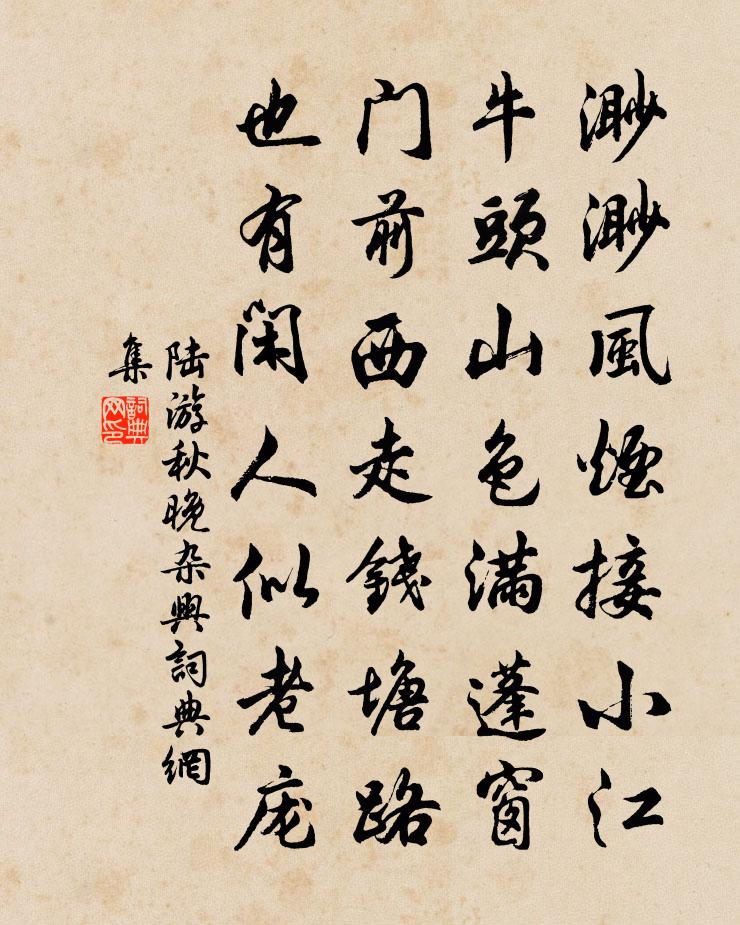 渺渺風煙接小江
牛頭山色滿蓬窗
门前西走錢塘路
也有閑人似老庞
陆游秋晚杂興詞典網
集
詞典
网印